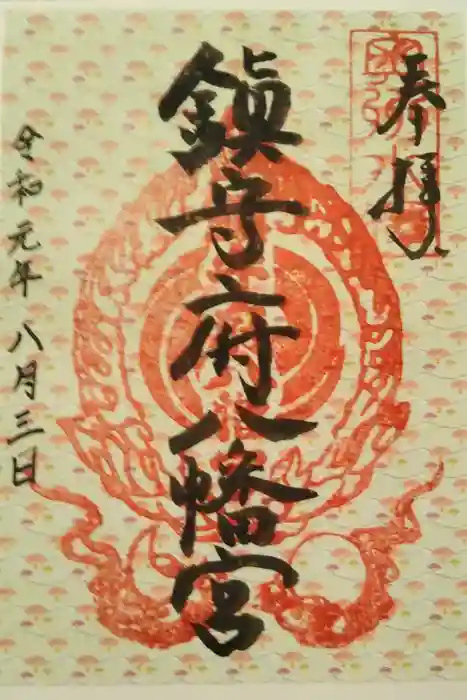 奉拝
鎮守府八幡宮
令和元年八月三日